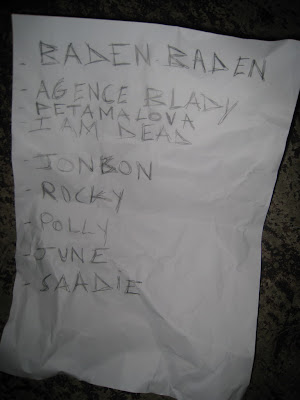 - BADEN BADEN
- AGENCE BLADY
- PETAMALOVA
- I AM DEAD
- JONBON
- ROCKY
- POLLY
- JUNE
- SAADIE